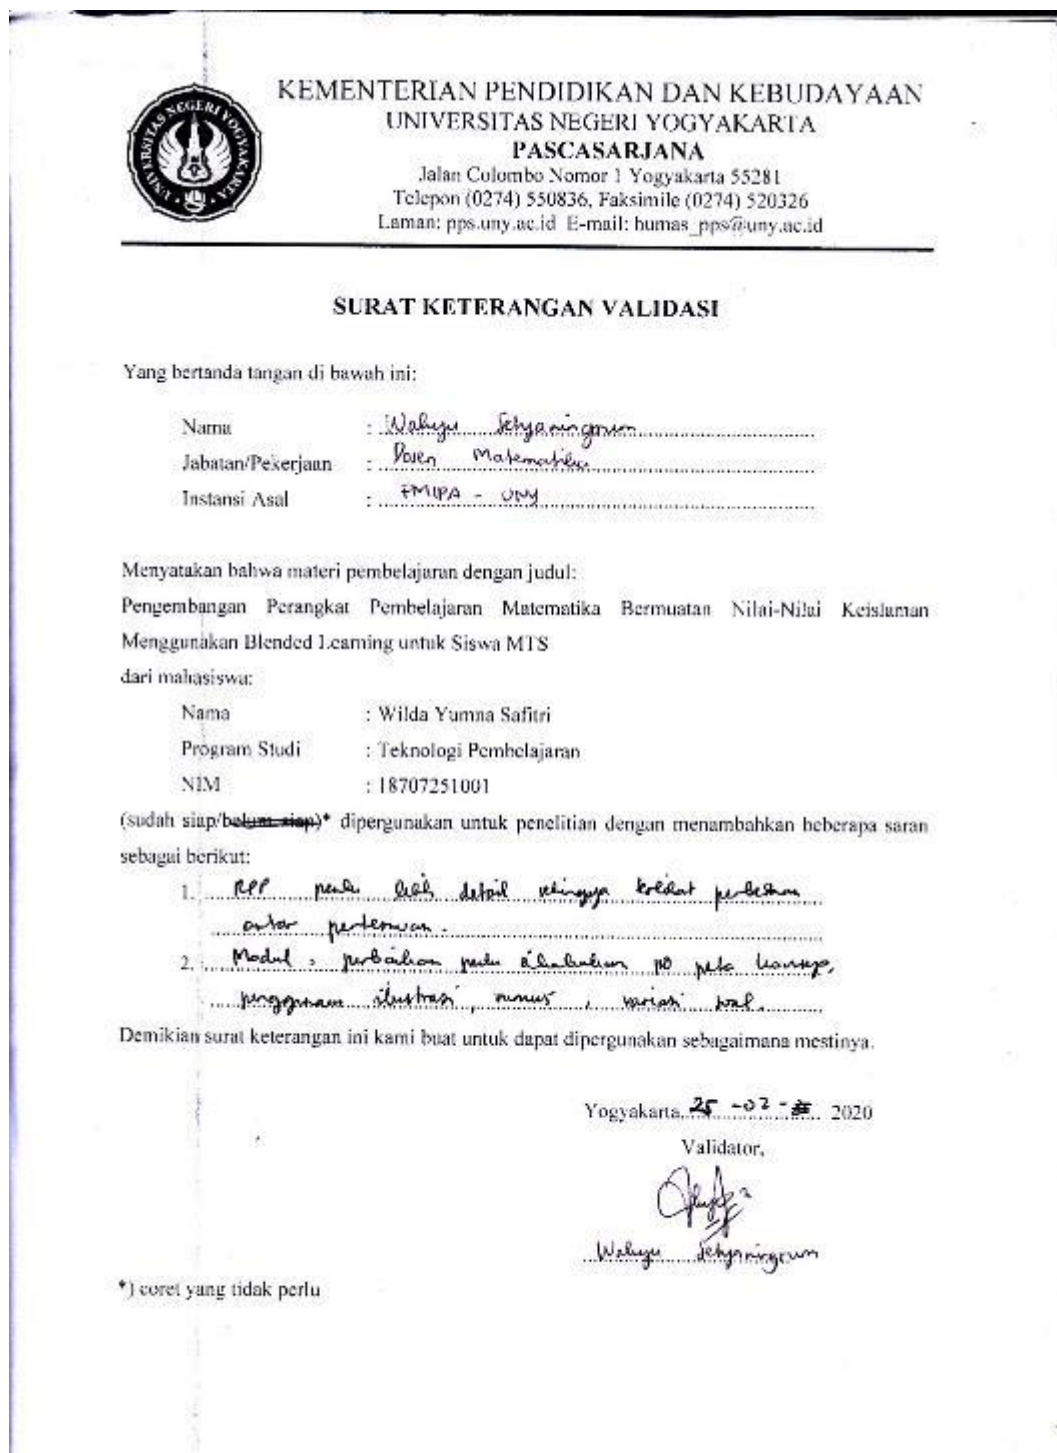 UNIVERSITAS NEGERI YOGYAKARTA
KEMENTERIAN PENDIDIKAN DAN KEBUDAYAAN
UNIVERSITAS NEGERI YOGYAKARTA
PASCASARJANA
Jalan Colombo Nomor 1 Yogyakarta 55281
Telepon (0274) 550836, Faksimile (0274) 520326
Laman: pps.uny.ac.id E-mail: humas_pps@uny.ac.id
SURAT KETERANGAN VALIDASI
Yang bertanda tangan di bawah ini:
Nama : Wahyu Setyaningrum
Jabatan/Pekerjaan : Dosen Matematika
Instansi Asal : FMIPA - UNY
Menyatakan bahwa materi pembelajaran dengan judul:
Pengembangan Perangkat Pembelajaran Matematika Bermuatan Nilai-Nilai Keislaman
Menggunakan Blended Learning untuk Siswa MTS
dari mahasiswa:
Nama : Wilda Yumna Safitri
Program Studi : Teknologi Pembelajaran
NIM : 18707251001
(sudah siap/belum siap)* dipergunakan untuk penelitian dengan menambahkan beberapa saran
sebagai berikut:
1. RPP perlu lebih detail sehingga terlihat perbedaan
antar pertemuan.
2. Modul : perbaikan perlu dilakukan pd peta konsep,
penggunaan ilustrasi, rumus, variasi soal.
Demikian surat keterangan ini kami buat untuk dapat dipergunakan sebagaimana mestinya.
Yogyakarta, 25 -02- 2020
Validator,
Wahyu Setyaningrum
*) coret yang tidak perlu